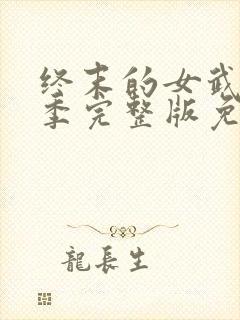 终末的女武
季完整版免
龍長生